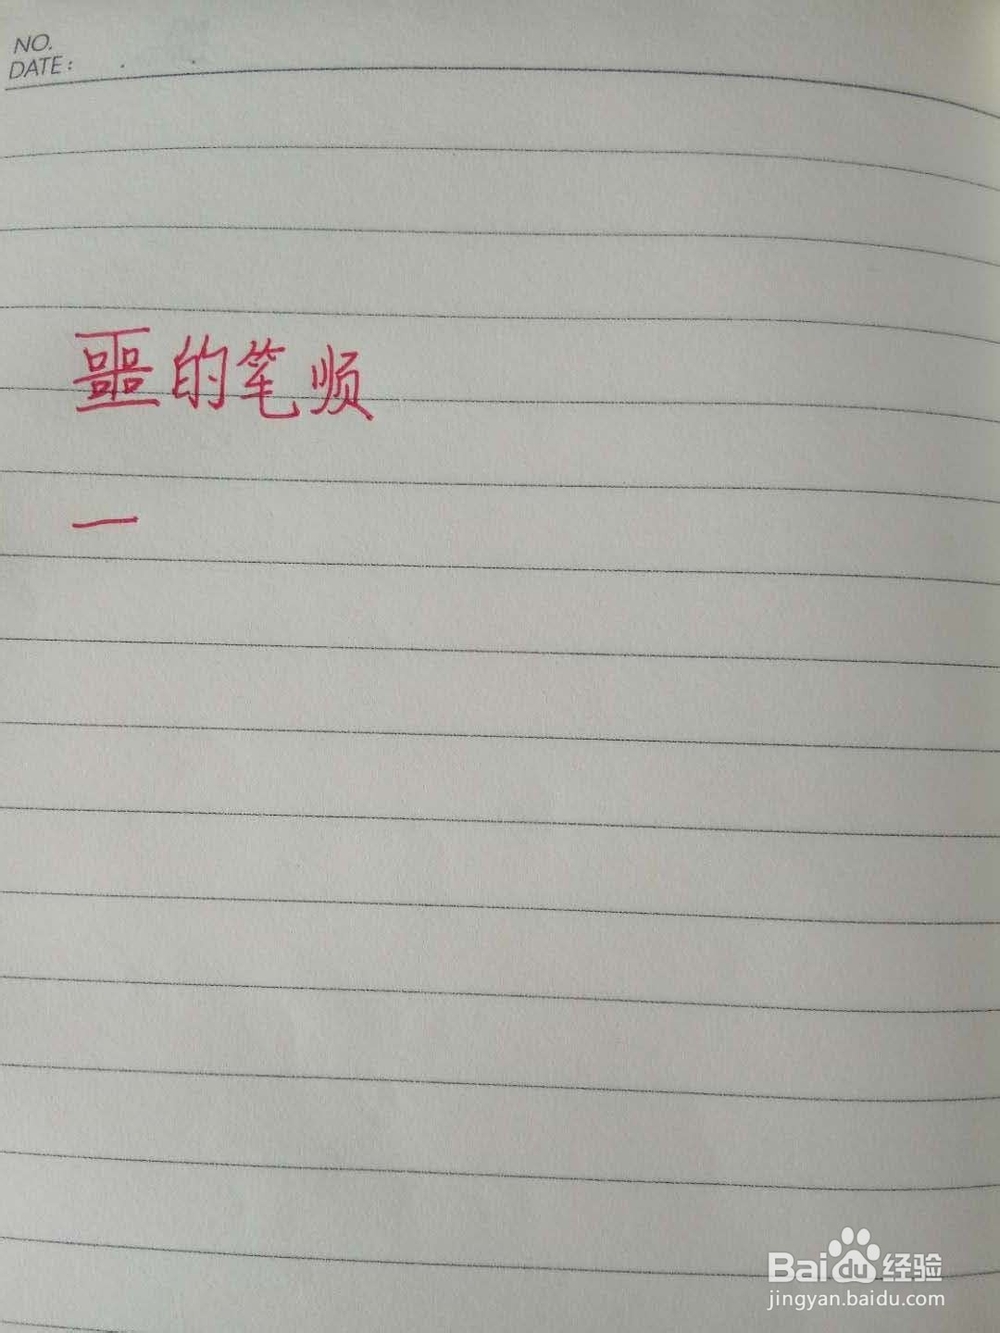 NO.
DATE:
噩的笔顺
一
Baidu经验
jingyan.baidu.com